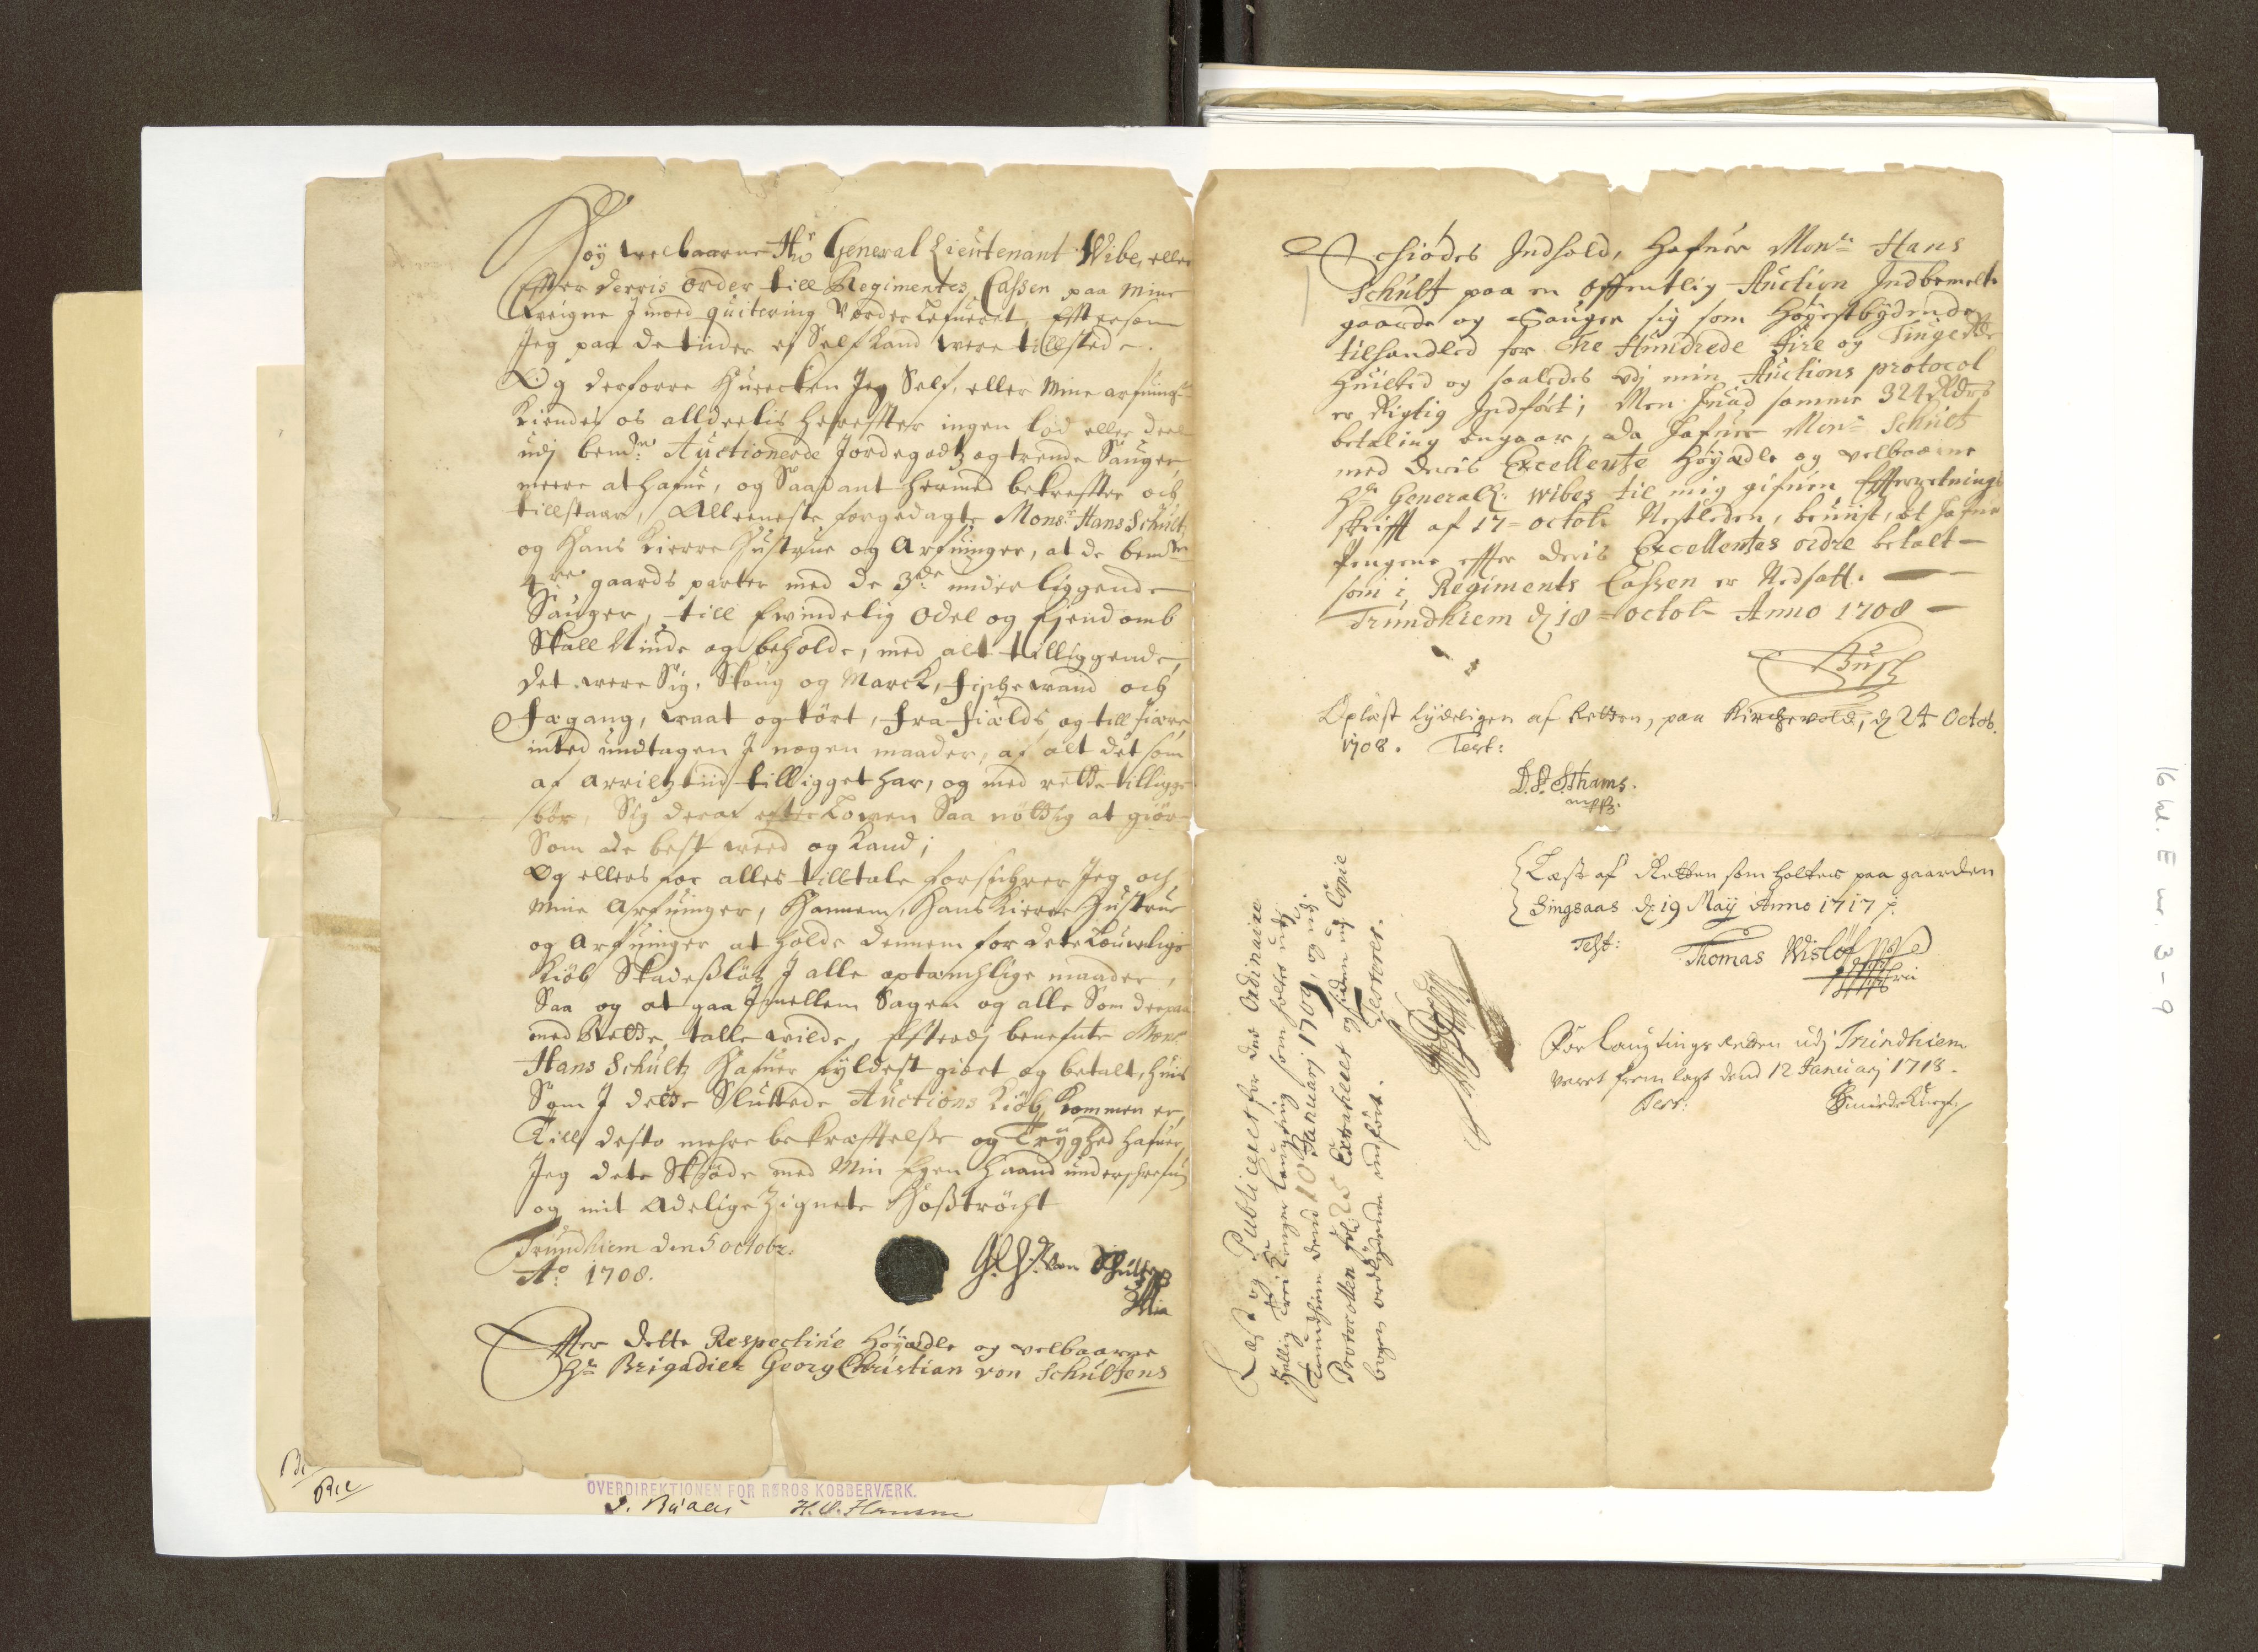 Høy welbaarne Hr General Lieutenant Wibe, eller
Effter derris order till Regimentes Cassen paa mine
Weigne J moed quitering Vorder Lefueret, Efftersom
Jeg paa de tiider ej Self kand were tillstede.
Og derforre Huercken Jeg Self, eller Mine arfuing
Kiendes os alldeelis herefter ingen lod eller deel
udj bemte Auctionerde Jordegodtz og trende Sauger
meere at hafue, og Saadant hermed bekreffter och
tillstaar, Alleeneste forgedagte Monsr Hans Schultz
og Hans Kierre Hustrue og Arfuinger, at de bemte
4re gaards parter med de 3de underliggende
Sauger, till Ewindelig Odel og Ejendomb
Skall Niude og beholde, med alt tilliggende,
det were Sig, Skoug og Marck, fischevand och
Fægang, waat og tørt, fra fields og till fiære
inted undtagen J nogen maader, af alt det som
af Arrilz tiid tilligget har, og med rette tilligge
bør, Sig deraf efter Lowen Saa nøttig at giøre
Som de best weed og Kand;
Og ellers for alles tilltale forsichrer Jeg och
Mine Arfuinger, Hannem, Hans Kierre Hustrue
og Arfuinger at holde dennem for dete Louwlige
Kiøb Skadesløs J alle optænchlige maader,
Saa og at gaa Jmellem Sagen og alle Som derpaa
med Rette talle wilde, Efterdj benefnte Monsr
Hans Schultz Hafuer fyldest giort og betalt, huis
Som J dette Sluttede Auctions Kiøb Kommen er,
Till desto mehre bekræfftelse og Tryghed hafuer
Jeg dete Skiøde med Min Egen Haand underschrefuet
og mit Adelige Zignete Hostrøcht
Trundhiem den 5 octobr:
Ao 1708.
G. C. von Schultz
Effter dette Respective Høyædle og velbaarne
Hr Brigadier Georg Christian von Schultzens
Schiødes Indhold, hafuer Monsr Hans
Schultz paa en offentlig Auction Indbemelte
gaarde og Sauger sig som Høyestbydende
tilhandled for Tre Hundrede Fire og Tiuge Rdr
Huilked og saaledes udj min Auctions protocol
er Rigtig Indført; Men huad somme 324 Rdrs
betaling angaar, da hafuer Monsr Schultz
med Deris Excellentze Høyædle og velbaarne
Hr Generall: Wibes til mig gifuen Effterretnings
skrifft af 17 octobr Nestleden, beuiist, at hafue
Pengene effter Deris Excellentzes ordre betalt
som i Regiments Cassen er Nedsatt.
Trundhiem d 18 octobr Anno 1708
Busch
Oplæst lydeligen af Retten, paa Kirchevold, d 24 Octob.
1708. Test:
D. S. Thams.
mpp.
Læst af Retten som holtes paa gaarden
Singsaas d. 19 Maij Anno 1717
Test: Thomas Wisløf
For Laugtings Retten udj Trundhiem
veret frem lagt dend 12 Januarj 1718.
Test:
Læst og Publiceret for den Ordinaire
Hellig Trei Konger laugting som holtes udj
Trundhiem dend 10 Januarj 1709, og udj
Protocollen fol: 25 Extraheret og siden udj Copie
bogen ordlydende indført. Testerer.
OVERDIREKTIONEN FOR RØROS KOBBERVÆRK.
H. O. Hansen
16 W. E nr. 3-9